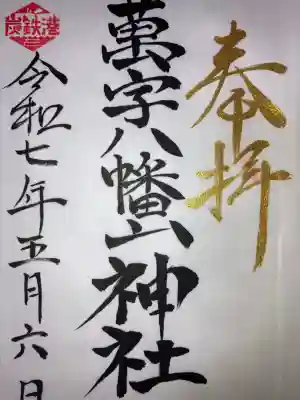 奉拝
萬字八幡山神社
令和七年五月六日
炭鉄港